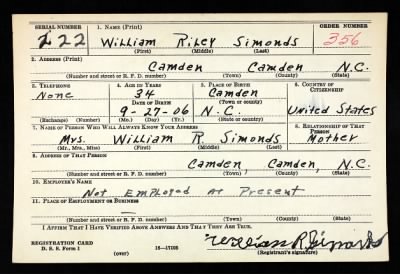 SERIAL NUMBER 1. NAME (Print) ORDER NUMBER
222 William Riley Simonds 356
(First) (Middle) (Last)
2. ADDRESS (Print)
Camden Camden N.C.
(Number and street or R. F. D. number) (Town) (County) (State)
3. TELEPHONE 4. AGE IN YEARS 5. PLACE OF BIRTH 6. COUNTRY OF CITIZENSHIP
None 34 Camden
DATE OF BIRTH (Town or county)
9-27-06 N.C. United States
(Exchange) (Number) (Mo.) (Day) (Yr.) (State or country)
7. NAME OF PERSON WHO WILL ALWAYS KNOW YOUR ADDRESS 8. RELATIONSHIP OF THAT PERSON
Mrs. William R Simonds Mother
(Mr., Mrs., Miss) (First) (Middle) (Last)
9. ADDRESS OF THAT PERSON
Camden, Camden, N.C.
(Number and street or R. F. D. number) (Town) (County) (State)
10. EMPLOYER'S NAME
Not Employed at Present
11. PLACE OF EMPLOYMENT OR BUSINESS
—
(Number and street or R. F. D. number) (Town) (County) (State)
I AFFIRM THAT I HAVE VERIFIED ABOVE ANSWERS AND THAT THEY ARE TRUE.
REGISTRATION CARD
D. S. S. Form 1 16—17105 William R Simonds
(over) (Registrant's signature)